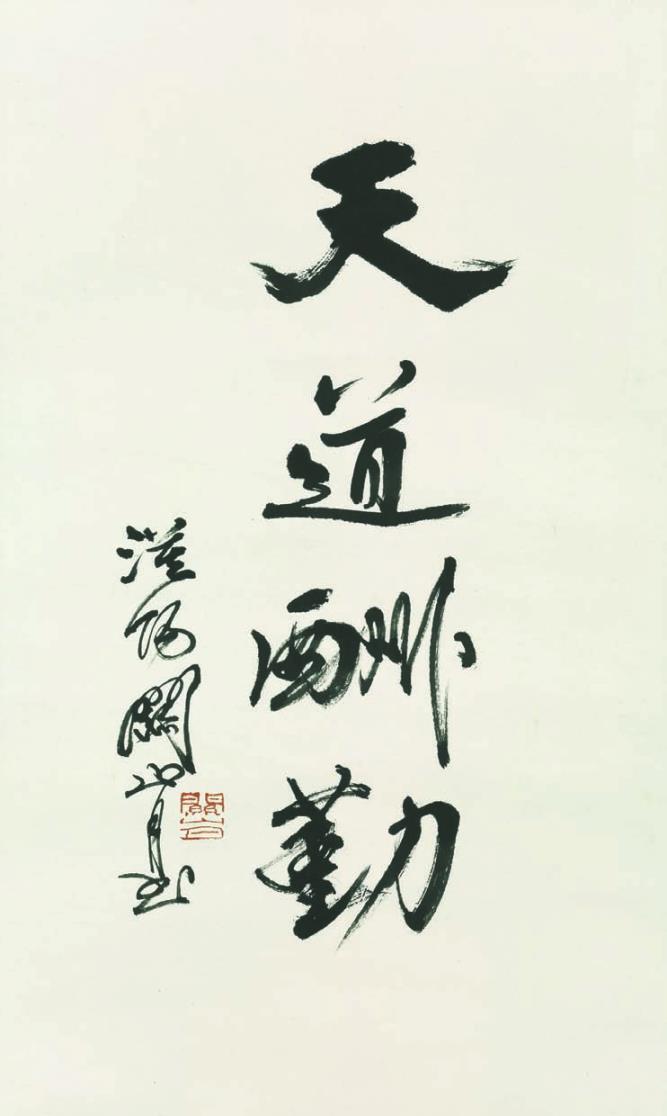 天道酬勤
漠陽關山月
關山月